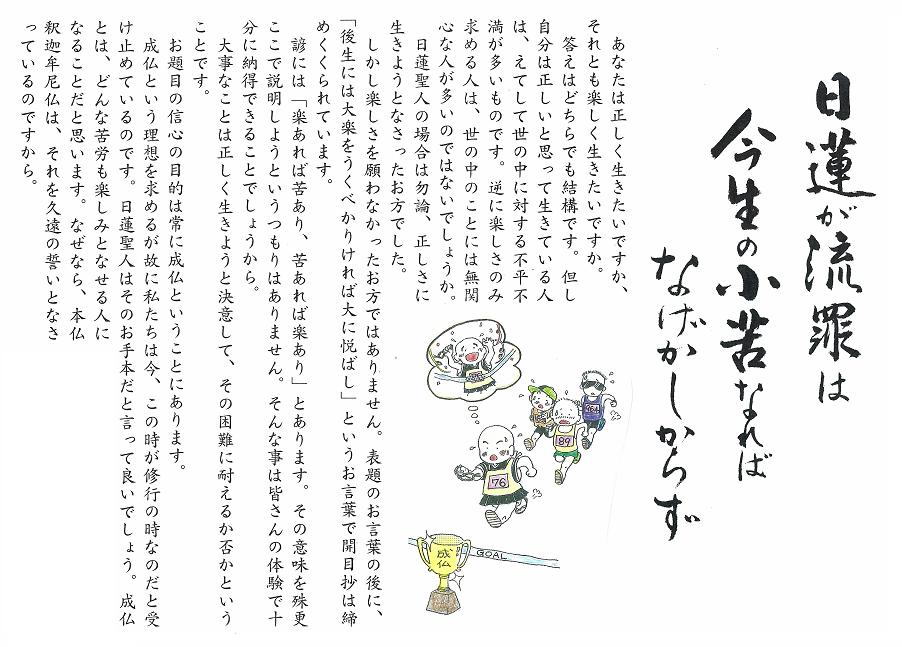 日蓮が流罪は
今生の小苦なれば
なげかしからず
あなたは正しく生きたいですか、
それとも楽しく生きたいですか。
答えはどちらでも結構です。但し
自分は正しいと思って生きている人
は、えてして世の中に対する不平不
満が多いものです。逆に楽しさのみ
求める人は、世の中のことには無関
心な人が多いのではないでしょうか。
日蓮聖人の場合は勿論、正しさに
生きようとなさったお方でした。
しかし楽しさを願わなかったお方ではありません。表題のお言葉の後に、
「後生には大楽をうくべかりければ大に悦ばし」というお言葉で開目抄は締
めくくられています。
諺には「楽あれば苦あり、苦あれば楽あり」とあります。その意味を殊更
ここで説明しようというつもりはありません。そんな事は皆さんの体験で十
分に納得できることでしょうから。
大事なことは正しく生きようと決意して、その困難に耐えるか否かという
ことです。
お題目の信心の目的は常に成仏ということにあります。
成仏という理想を求めるが故に私たちは今、この時が修行の時なのだと受
け止めているのです。日蓮聖人はそのお手本だと言って良いでしょう。成仏
とは、どんな苦労も楽しみとなせる人に
なることだと思います。なぜなら、本仏
釈迦牟尼仏は、それを久遠の誓いとなさ
っているのですから。
89
76
GOAL
成仏